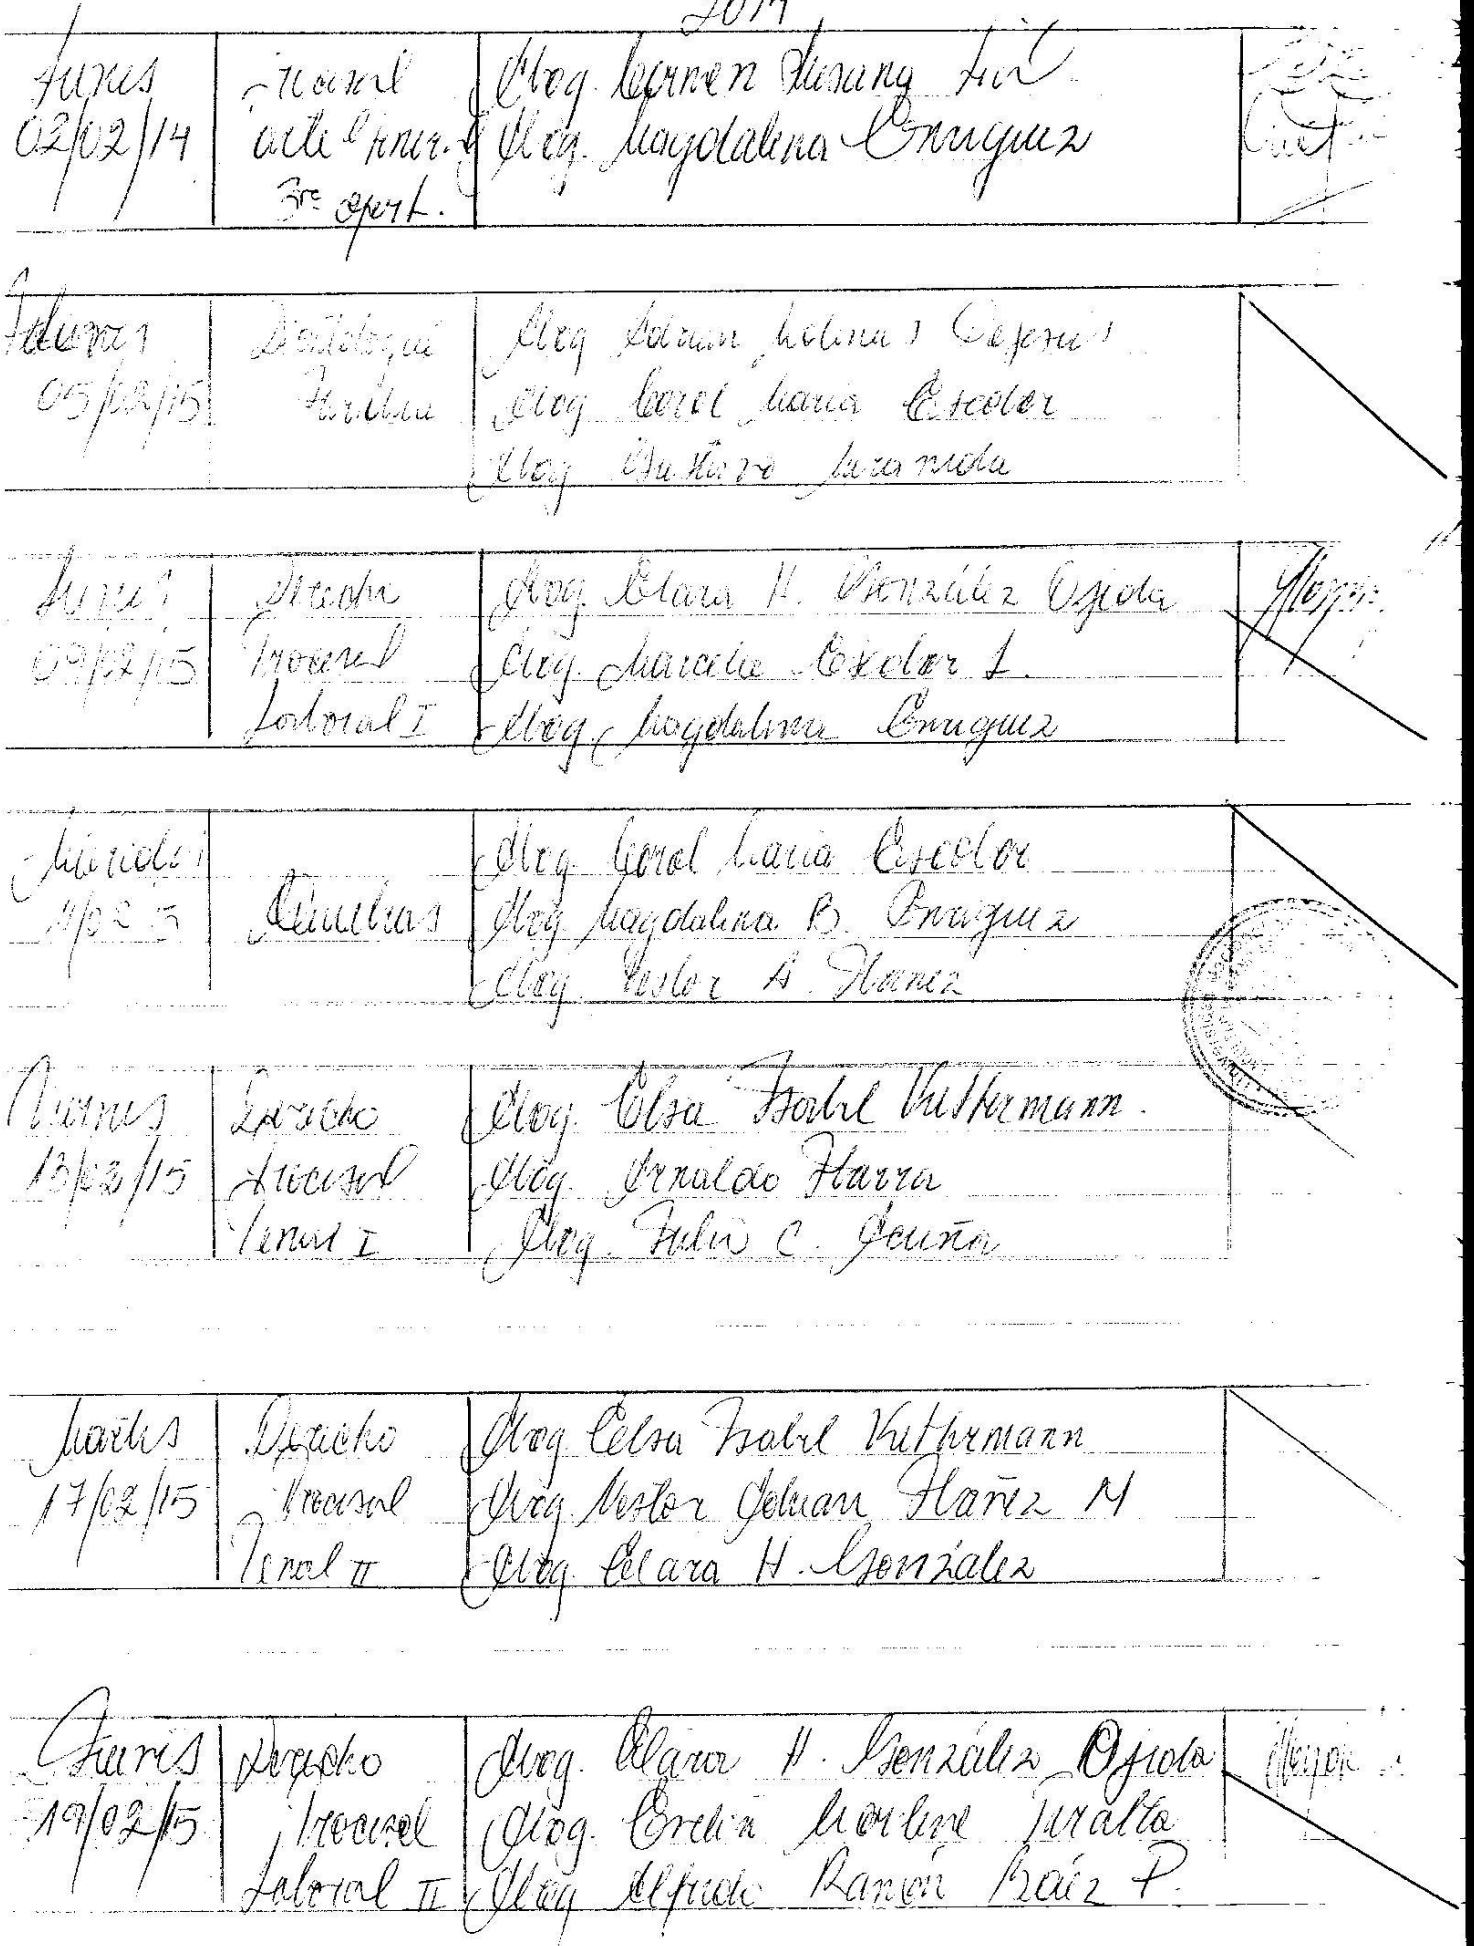 2014
Lunes
02/02/14
Procesal
3re opert.
Abog. Carmen Susana
Abog. Magdalena Enriquez
Jueves
05/02/15
Deontología
Jurídica
Abog Adrian Molinas Dejesús
Abog Carol Maria Escobar
Abog Gustavo Miranda
Lunes
09/02/15
Derecho
Procesal
Laboral I
Abog. Clara H. González Ojeda
Abog. Marcelo Escobar L.
Abog. Magdalena Enriquez
Miercoles
11/02/15
Quiebras
Abog. Carol Maria Escobar
Abog Magdalena B. Enriquez
Abog. Nestor A. Ibanez
Viernes
13/02/15
Derecho
Procesal
Penal I
Abog. Celsa Isabel Kuthermann.
Abog. Arnaldo Ibarra
Abog. Julio C. Acuña
Martes
17/02/15
Derecho
Procesal
Penal II
Abog Celsa Isabel Kuthermann
Abog. Nestor Adrian Ibañez M
Abog. Clara H. González
Jueves
19/02/15
Derecho
Procesal
Laboral II
Abog. Clara H. González Ojeda
Abog. Evelin Marlene Peralta
Abog Alfredo Ramón Báez P.